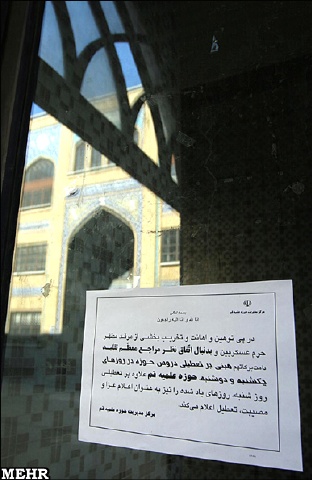 بسمه تعالی
انا لله و انا الیه راجعون
مرکز مدیریت حوزه علمیه قم
در پی توهین و اهانت و تخریب بخشی از مرقد مطهر
حرم عسکریین و بدنبال اتفاق نظر مراجع معظم تقلید
دامت برکاتهم مبنی بر تعطیلی دروس حوزه در روزهای
یکشنبه و دوشنبه، حوزه علمیه قم علاوه بر تعطیلی
روز شنبه، روزهای یاد شده را نیز به عنوان اعلام عزا و
مصیبت، تعطیل اعلام می‌کند.
مرکز مدیریت حوزه علمیه قم
MEHR